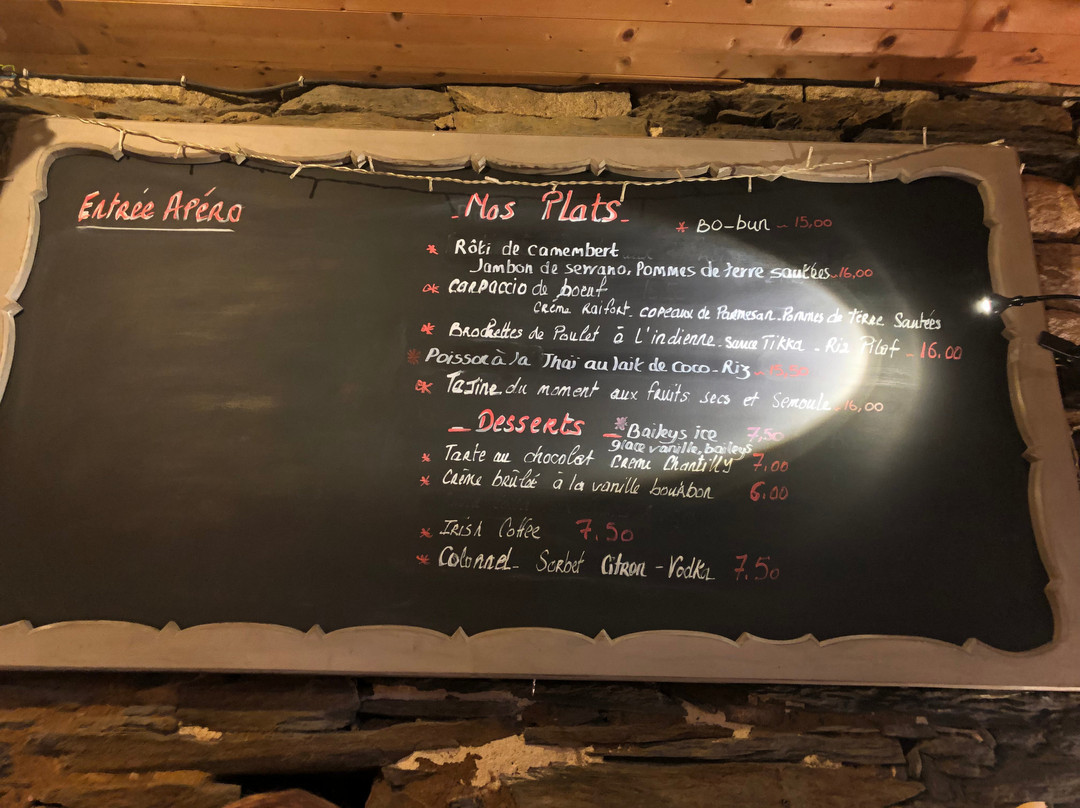 Entrée Apéro
- Nos Plats -
* BO-bun - 15,00
* Rôti de camembert
Jambon de serrano, Pommes de terre sautées - 16,00
* Carpaccio de boeuf
Crème Raifort. copeaux de Parmesan. Pommes de Terre Sautées
* Brochettes de Poulet à l'indienne. Sauce Tikka - Riz Pilaf - 16.00
* Poisson à la Thaï au lait de coco - Riz -
* Tajine du moment aux fruits secs et Semoule 16,00
- Desserts -
* Baileys ice 7,50
glace vanille, baileys
* Tarte au chocolat Crème Chantilly 7,00
* Crème brûlée à la vanille bourbon 6.00
* Irish Coffee 7.50
* Colonnel - Sorbet Citron - Vodka 7.50